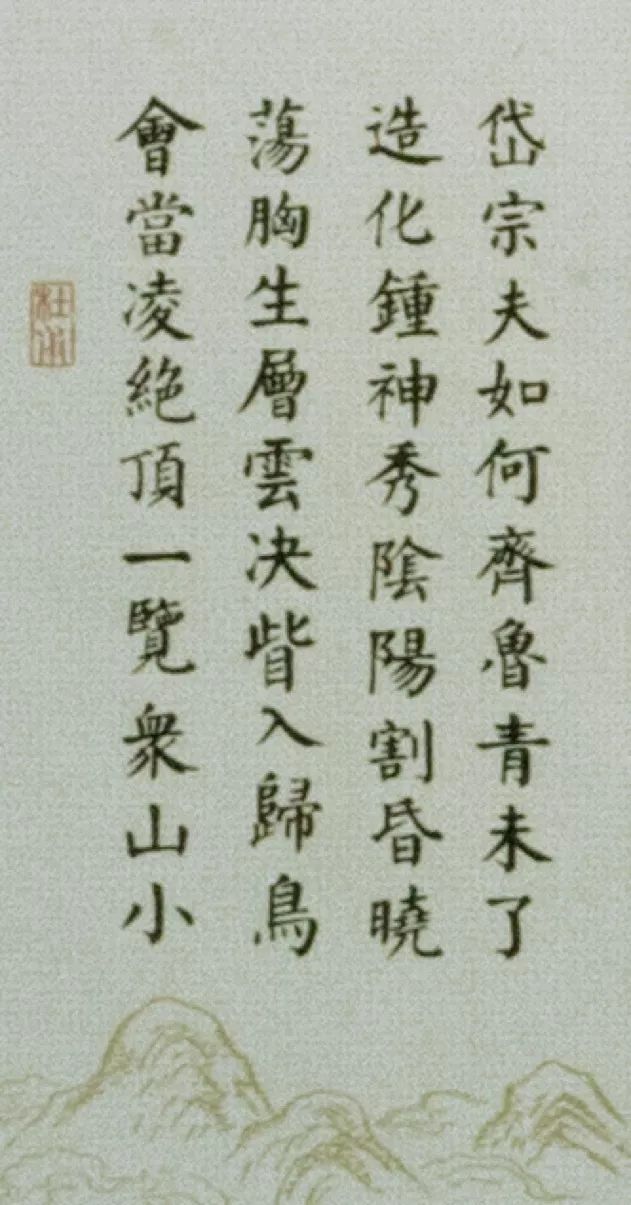 岱宗夫如何齊魯青未了
造化鍾神秀陰陽割昏曉
蕩胸生層雲决眥入歸鳥
會當凌絶頂一覽衆山小